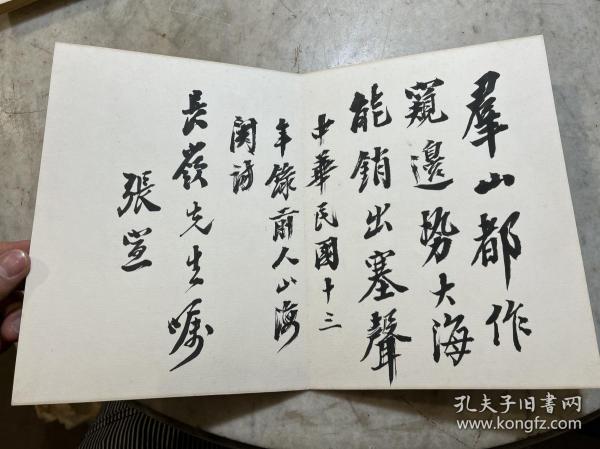 羣山都作
窺邊勢大海
能銷出塞聲
中華民國十三
年錄前人山海
関詩
長嶺先生嘱
張壴
孔夫子旧书网
www.kongfz.com